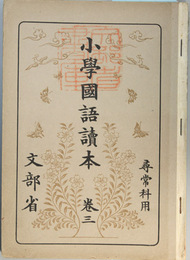 尋常科用
小學國語讀本 卷三
文部省